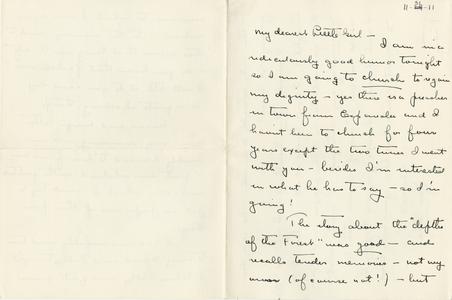 11-24-11
My dearest Little Girl —
I am in a
ridiculously good humor tonight
so I am going to church to regain
my dignity — yes there is a preacher
in town from Espanola and I
havnt been to church for four
years except the two times I went
with you — besides I'm interested
in what he has to say — so I'm
going!
The story about the "depths
of the Forest" was good — and
recalls tender memories — not my
own (of course not!) — but